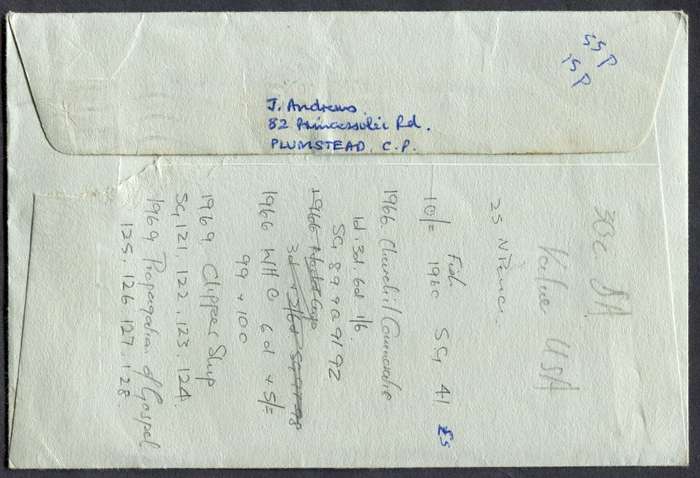 55P
15P
J. Andrews
82 Princessvlei Rd.
PLUMSTEAD. C.P.
30c SA
Value USA
25
Fish
10/= 1960 SG 41 £5
1966 Churchill Commorative
1d. 3d. 6d 1/6
SG 89 90 91 92
1966
3d + 5/6d SG
1966 WHO 6d + 5/=
99 + 100
1969 Clipper Ship
SG 121, 122, 123, 124
1969 Propagation of Gospel
125. 126 127. 128